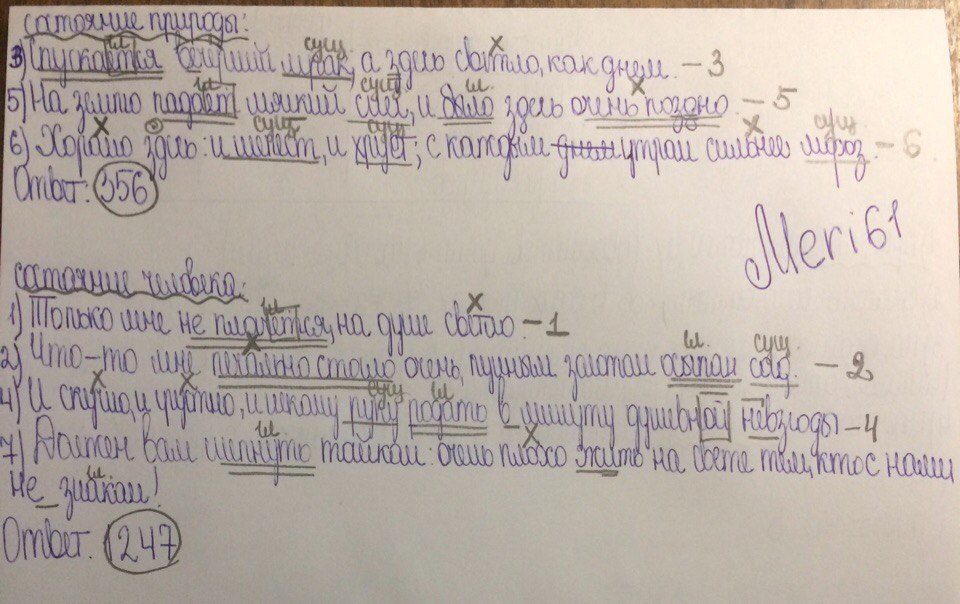 состояние природы:
3) Спускается вечерний мрак, а здесь светло, как днем. - 3
5) На землю падает мягкий снег, и было здесь очень поздно - 5
6) Хорошо здесь: и шелест, и хруст; с каждым днем утром сильнее мороз. - 6
Ответ: 356
Meri61
состояние человека:
1) Только мне не плачется, на душе светло - 1
2) Что-то мне печально стало очень, лунным золотом осыпан сад. - 2
4) И скучно, и грустно, и некому руку подать в минуту душевной невзгоды - 4
7) Должен вам шепнуть тайком: очень плохо жить на свете тем, кто с нами
не знаком!
Ответ: 1247